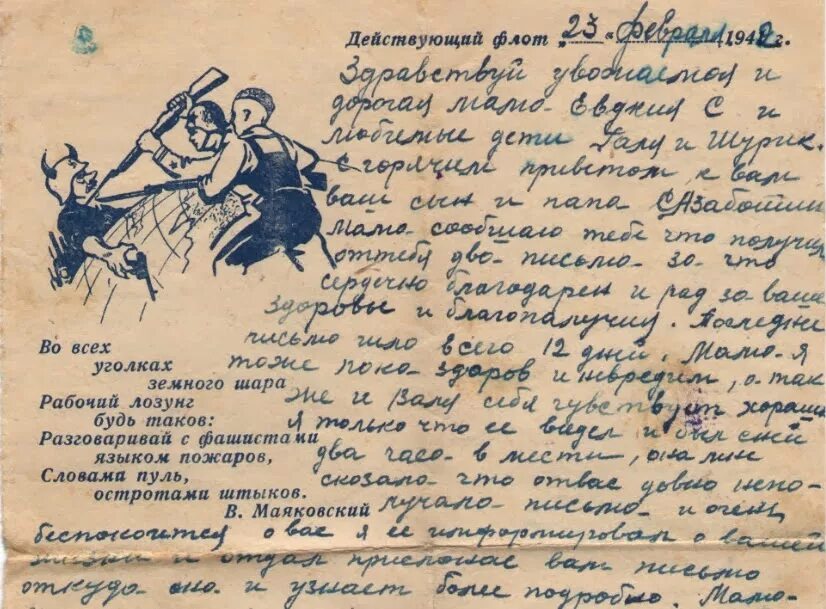 Действующий флот „23“ февраля 1942 г.
Здравствуй уважаемая и
дорогая мама Евдкия С и
любимые дети Галя и Шурик.
С горячим приветом к вам
ваш сын и папа С Азаботин
Мама сообщаю тебе что получил
оттебя два письма за что
сердечно благодарен и рад за ваше
здоровье и благопалучия. Последне
письмо шло всего 12 дней. Мама я
тоже пока здоров и невредим, а так
же и Валя себя чувствует хорошо
я только что ее видел и был с ней
два часа в месте, она мне
сказала что отвас давно непо-
лучала письма и очень
беспокоится о вас я ее информировал о вашей
жизни и отдал присланое вам письмо
откуда она и узнает более подробно. Мама
Во всех
уголках
земного шара
Рабочий лозунг
будь таков:
Разговаривай с фашистами
языком пожаров,
Словами пуль,
остротами штыков.
В. Маяковский